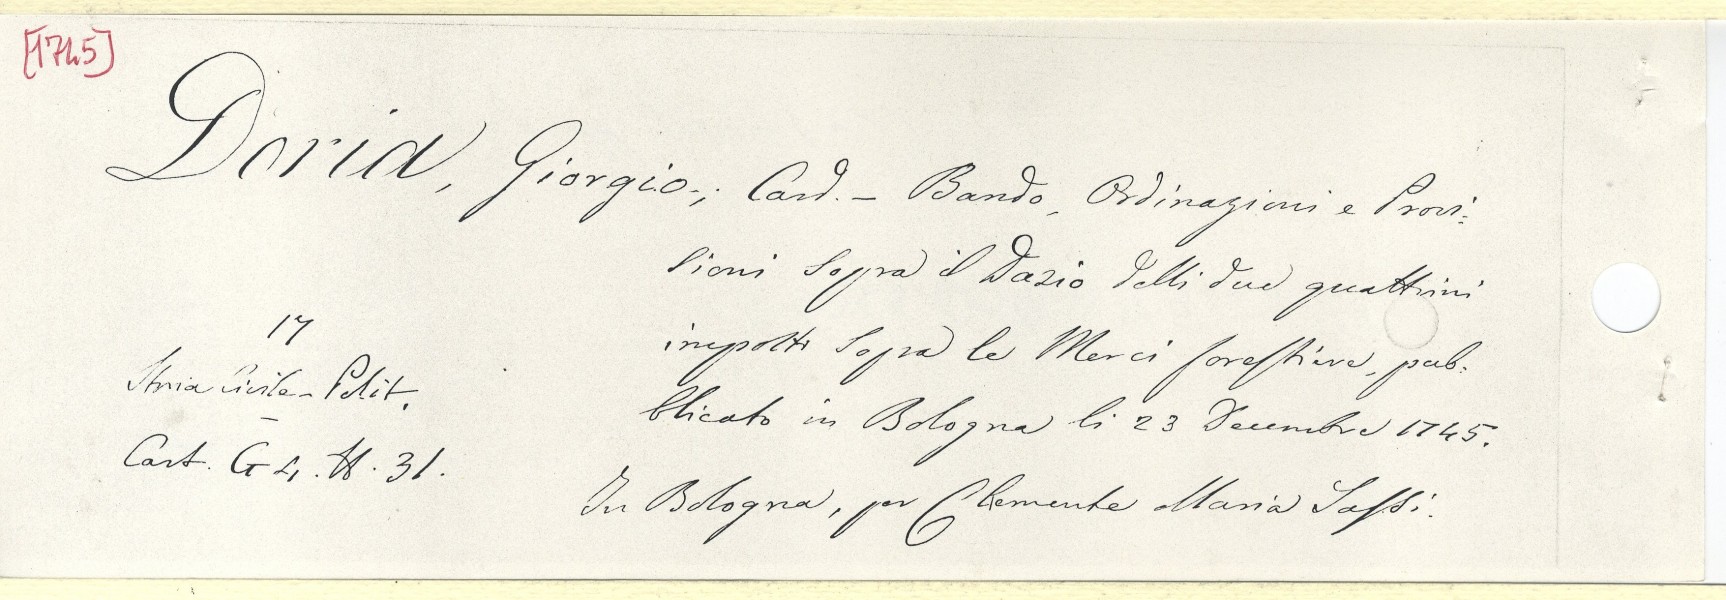 [1745]
Doria, Giorgio.; Card. – Bando, Ordinazioni e Provi:
sioni sopra il Dazio delli due quattrini
imposti sopra le Merci forestiere, pub:
blicato in Bologna li 23 Decembre 1745.
In Bologna, per Clemente Maria Sassi.
17
Storia Civile-Polit.
Cart. G 4. N. 31.